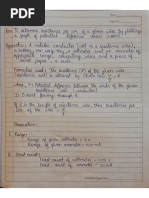 Aim: To determine resistance per cm of a given wire by plotting
a graph of potential difference versus current.
Apparatus: A metallic conductor (coil or a resistance wire),
a battery, one way key, a voltmeter and an ammeter of
appropriate range, connecting wires and a piece of
sand paper, a scale.
Formulae used: The resistance (R) of the given wire
(resistance wire or coil) is obtained by Ohm's Law
V/I = R
Here, V: Potential difference between the ends of the given
I: Current flowing through it.
If l is the length of resistance wire, then resistance per
cm of the wire = R/l
Observation:
1. Range:
Range of given voltmeter =
Range of given ammeter =
2. Least count:
Least count of voltmeter =
Least count of ammeter =